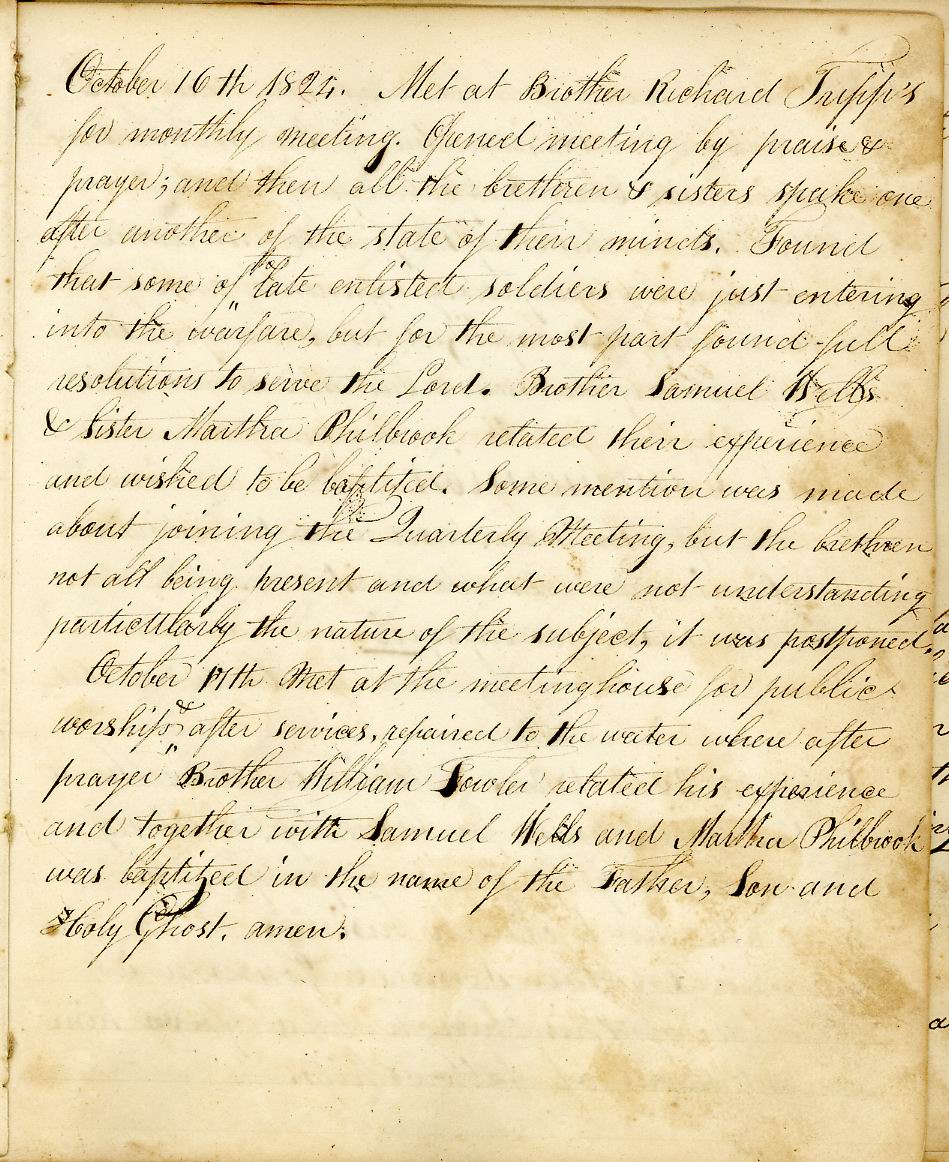 October 16th 1824. Met at Brother Richard Tripp's
for monthly meeting. Opened meeting by praise &
prayer; and then all the brethren & sisters spake one
after another of the state of their minds. Found
that some of late enlisted soldiers were just entering
into the warfare, but for the most part found full
resolutions to serve the Lord. Brother Samuel Wells
& Sister Martha Philbrook related their experience
and wished to be baptized. Some mention was made
about joining the Quarterly Meeting, but the brethren
not all being present and what were not understanding
particularly the nature of the subject, it was postponed.
October 17th Met at the meetinghouse for public
worship & after services, repaired to the water where after
prayer Brother William Fowler related his experience
and together with Samuel Wells and Martha Philbrook
was baptized in the name of the Father, Son and
Holy Ghost. amen.